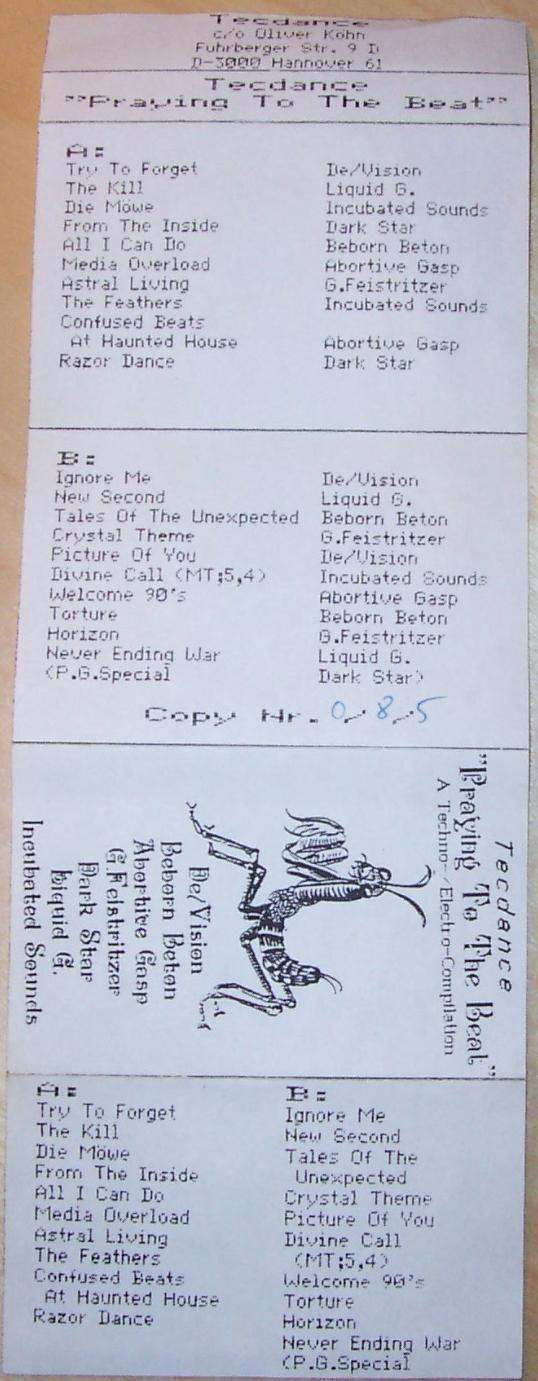 Tecdance
c/o Oliver Köhn
Fuhrberger Str. 9 D
D-3000 Hannover 61
Tecdance
"Praying To The Beat"
A:
Try To Forget De/Vision
The Kill Liquid G.
Die Möwe Incubated Sounds
From The Inside Dark Star
All I Can Do Beborn Beton
Media Overload Abortive Gasp
Astral Living G.Feistritzer
The Feathers Incubated Sounds
Confused Beats
At Haunted House Abortive Gasp
Razor Dance Dark Star
B:
Ignore Me De/Vision
New Second Liquid G.
Tales Of The Unexpected Beborn Beton
Crystal Theme G.Feistritzer
Picture Of You De/Vision
Divine Call (MT;5,4) Incubated Sounds
Welcome 90's Abortive Gasp
Torture Beborn Beton
Horizon G.Feistritzer
Never Ending War Liquid G.
(P.G.Special Dark Star)
Copy Nr. 0/8/5
Tecdance
"Praying To The Beat"
A Techno-/Electro-Compilation
De/Vision
Beborn Beton
Abortive Gasp
G.Feistritzer
Dark Star
Liquid G.
Incubated Sounds
A:
Try To Forget
The Kill
Die Möwe
From The Inside
All I Can Do
Media Overload
Astral Living
The Feathers
Confused Beats
At Haunted House
Razor Dance
B:
Ignore Me
New Second
Tales Of The
Unexpected
Crystal Theme
Picture Of You
Divine Call
(MT;5,4)
Welcome 90's
Torture
Horizon
Never Ending War
(P.G.Special